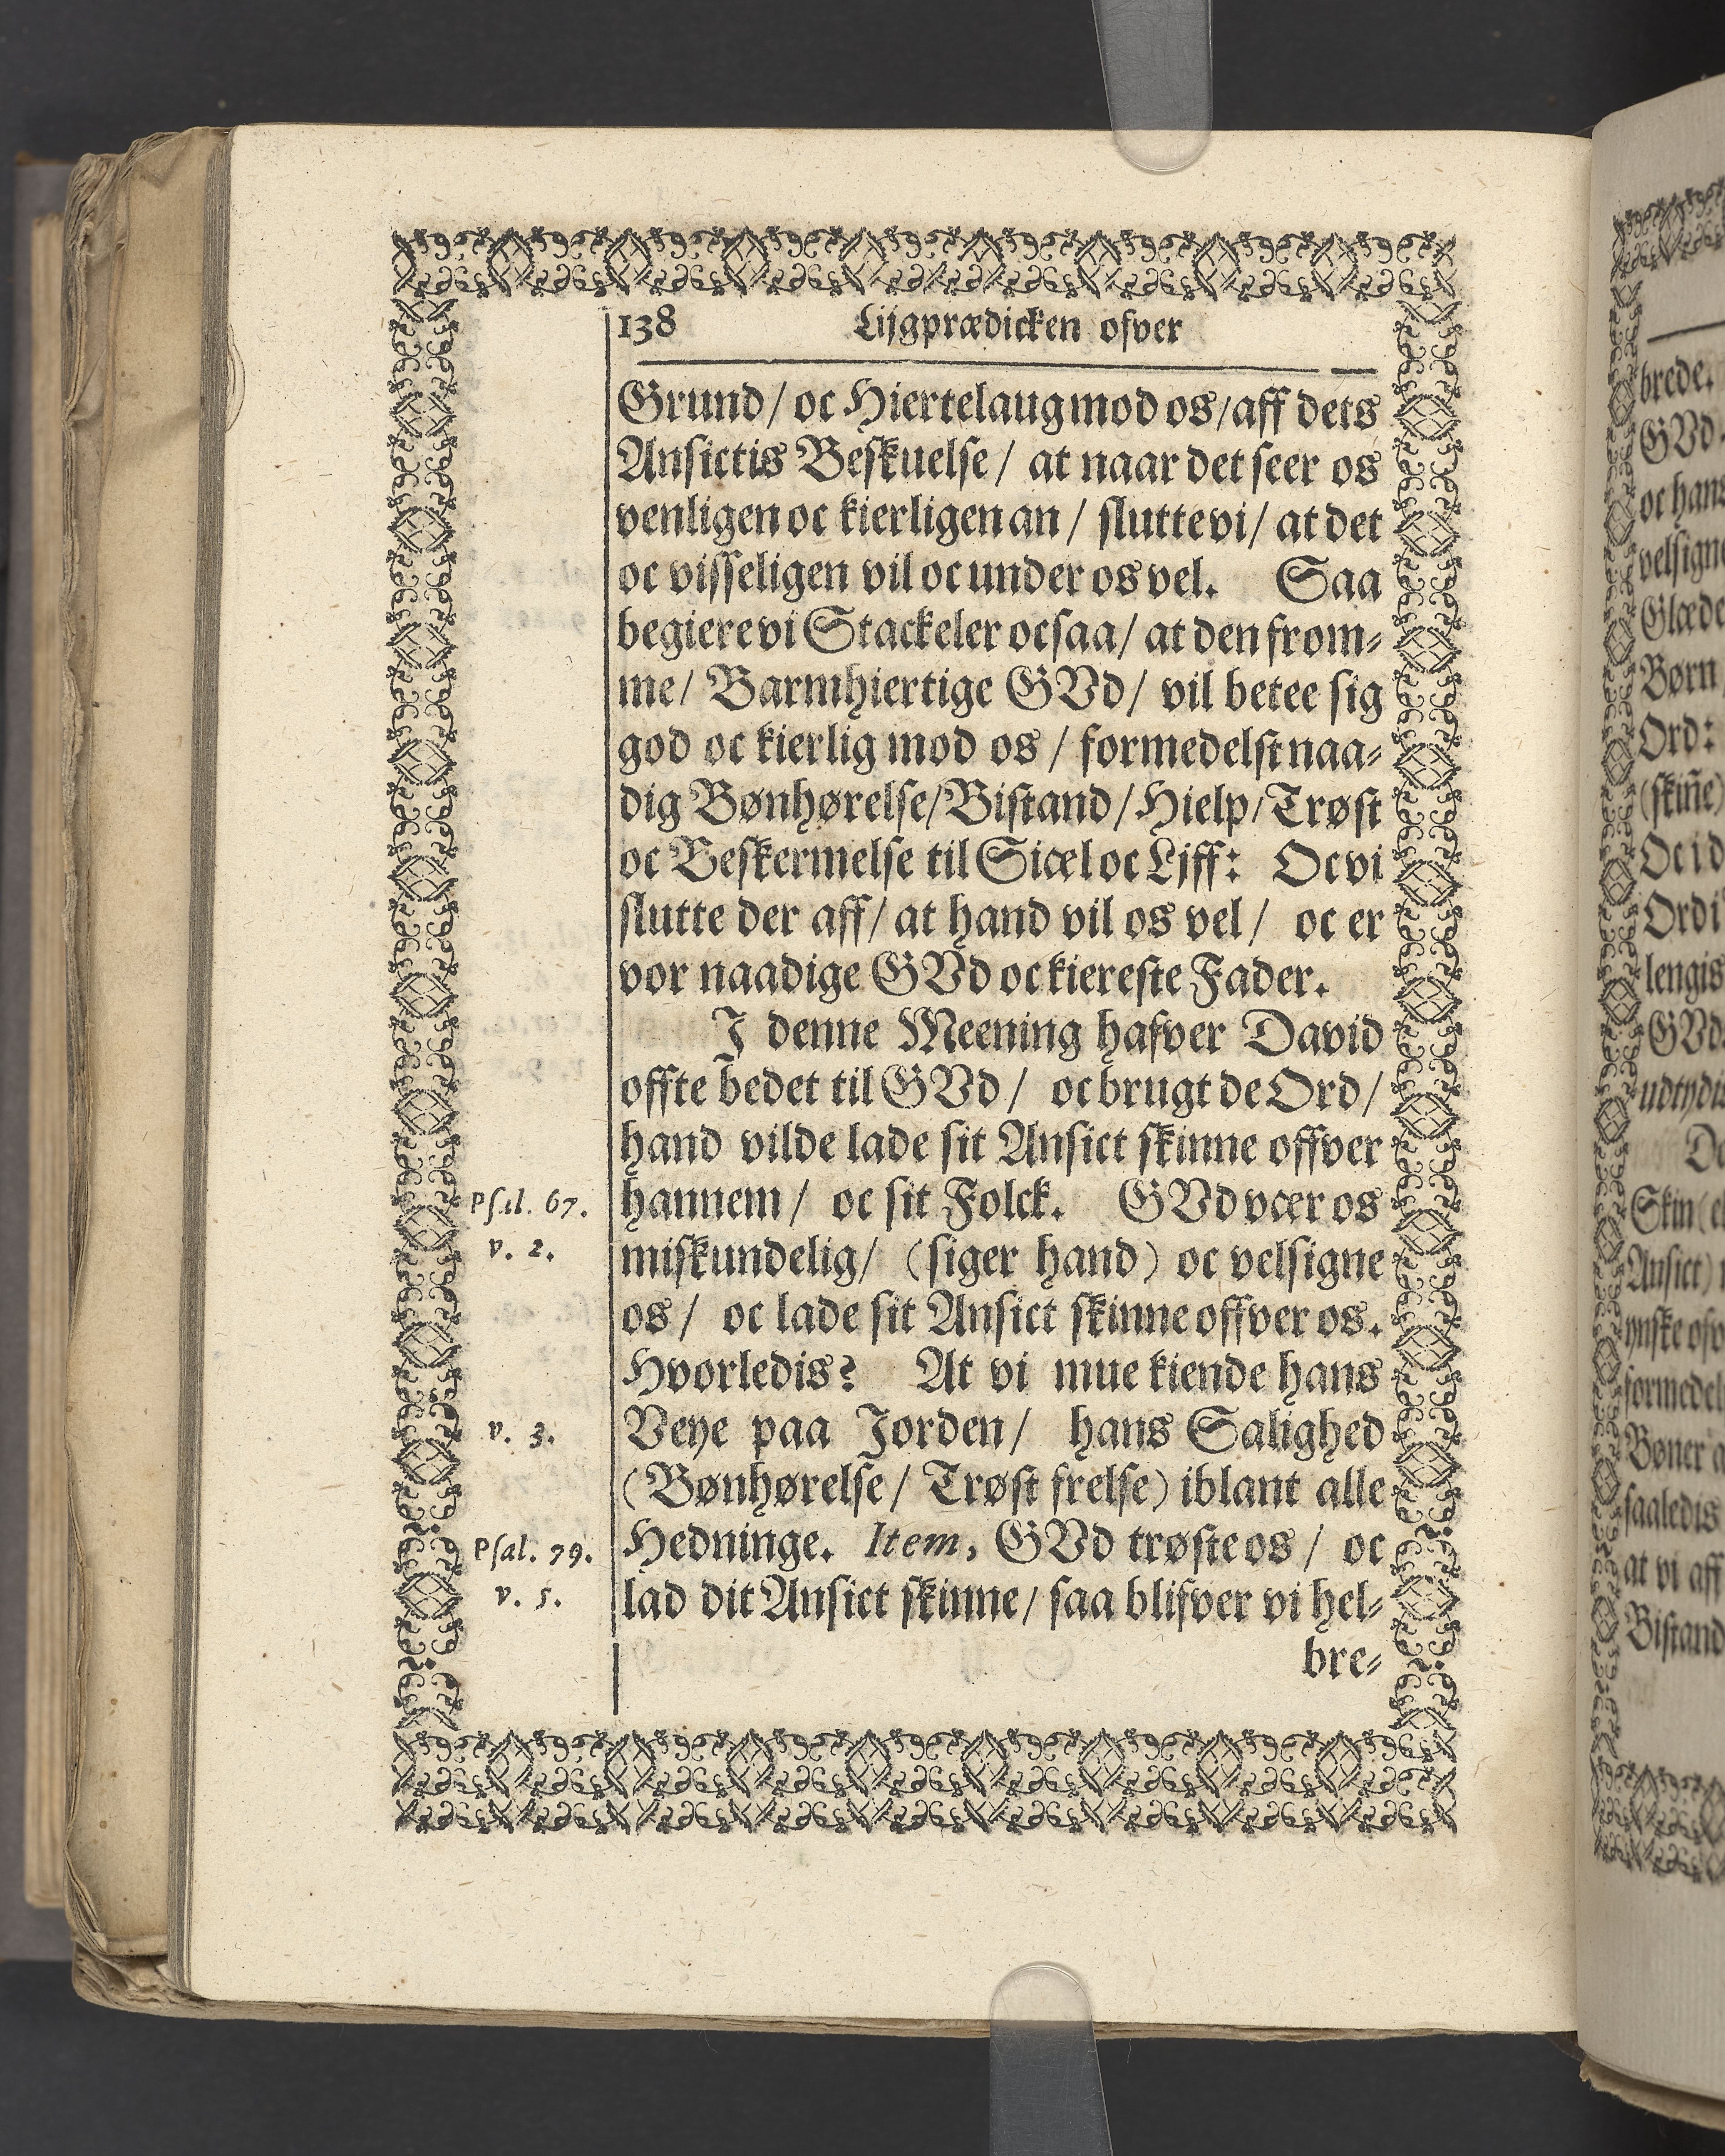 138 Lijgprædicken ofver
Grund/ oc Hiertelaug mod os/ aff dets
Ansictis Beskuelse/ at naar det seer os
venligen oc kierligen an/ slutte vi/ at det
oc visseligen vil oc under os vel. Saa
begiere vi Stackeler ocsaa/ at den from-
me/ Barmhiertige GVd/ vil betee sig
god oc kierlig mod os/ formedelst naa-
dig Bønhørelse/ Bistand/ Hielp/ Trøst
oc Beskermelse til Siæl oc Ljff: Oc vi
slutte der aff/ at hand vil os vel/ oc er
vor naadige GVd oc kiereste Fader.
I denne Meening hafver David
offte bedet til GVd/ oc brugt de Ord/
hand vilde lade sit Ansict skinne offver
Psal. 67. hannem/ oc sit Folck. GVd vær os
v. 2. miskundelig/ (siger hand) oc velsigne
os/ oc lade sit Ansict skinne offver os.
Hvorledis? At vi mue kiende hans
v. 3. Veye paa Jorden/ hans Salighed
(Bønhørelse/ Trøst frelse) iblant alle
Psal. 79. Hedninge. Item, GVd trøste os/ oc
v. 5. lad dit Ansict skinne/ saa blifver vi hel-
bre-
brede.
GVd
oc hans
Børn
Ord:
(skiñe)
Oc i d
lengis
GVd
at vi aff
Bistand